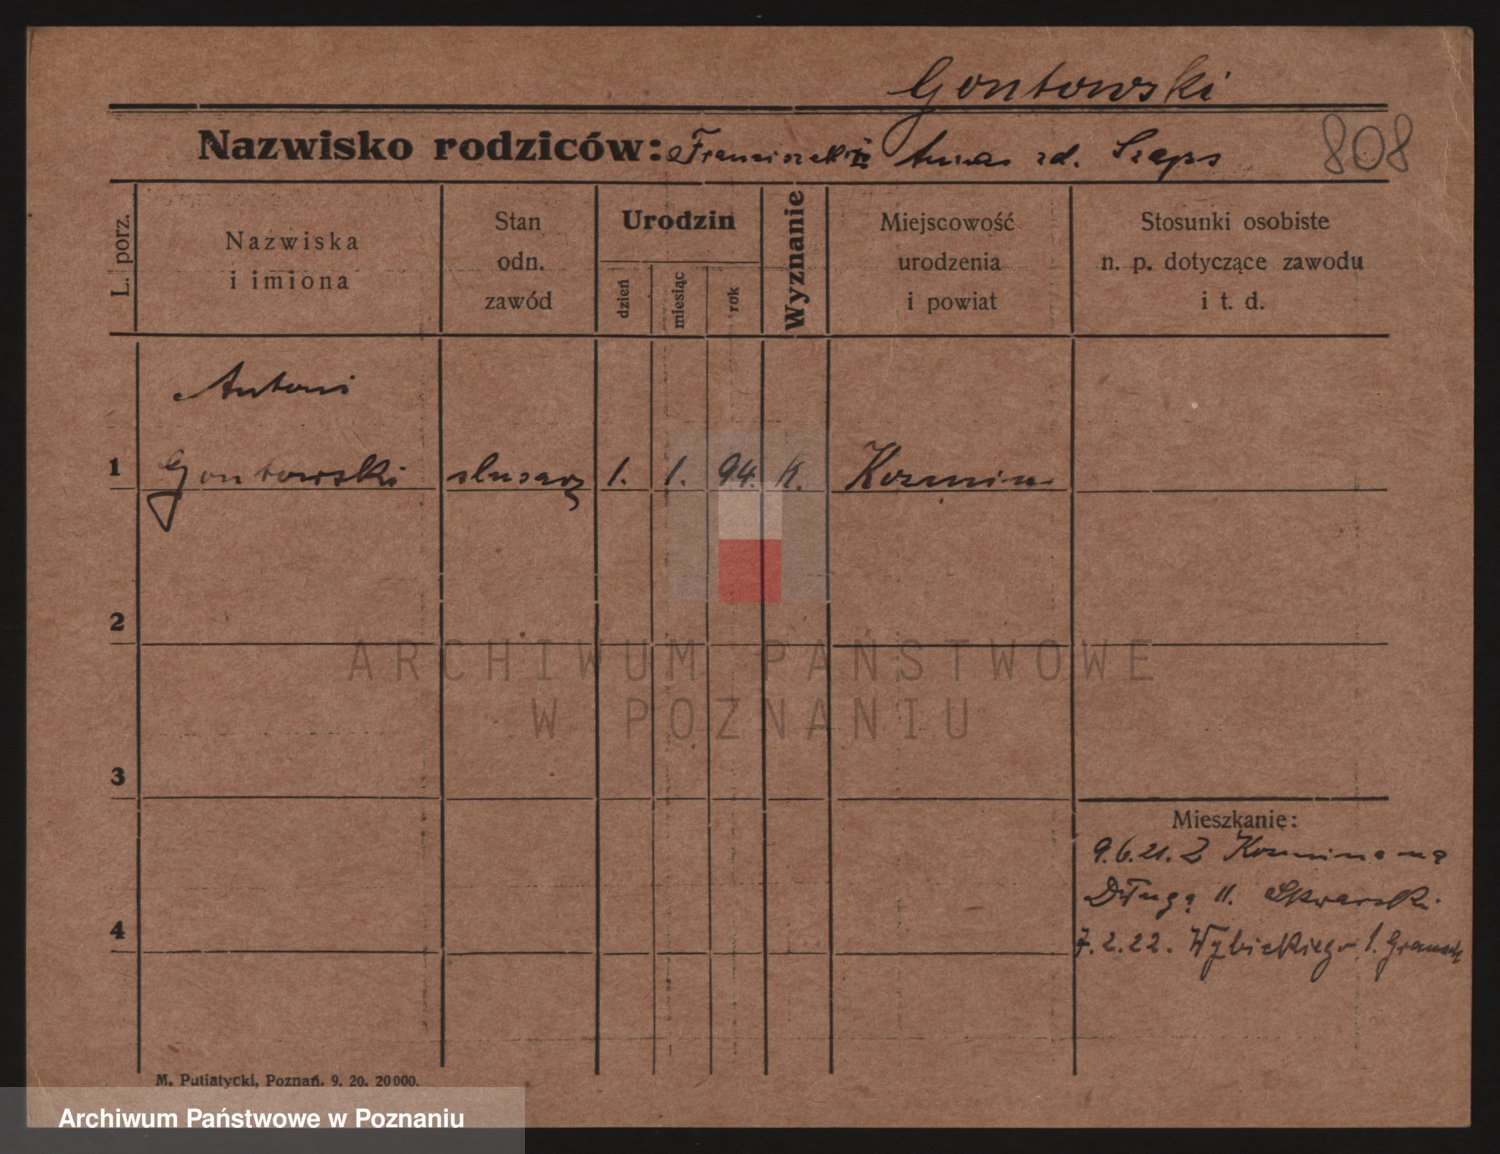 Gontowski
Nazwisko rodziców: Franciszek i Anna zd. Szaps
808
L. porz.
Nazwiska i imiona
Stan odn. zawód
Urodzin
dzień
miesiąc
rok
Wyznanie
Miejscowość urodzenia i powiat
Stosunki osobiste n. p. dotyczące zawodu i t. d.
Antoni
1 Gontowski slusarz 1. 1. 94. K. Kozmin
2
ARCHIWUM PAŃSTWOWE
W POZNANIU
3
Mieszkanie:
9.6.21. Z Kozmina na
Długą 11. Skwarski
4
7.2.22. Wybickiego 1.
M. Putiatycki, Poznań. 9. 20. 20000.
Archiwum Państwowe w Poznaniu